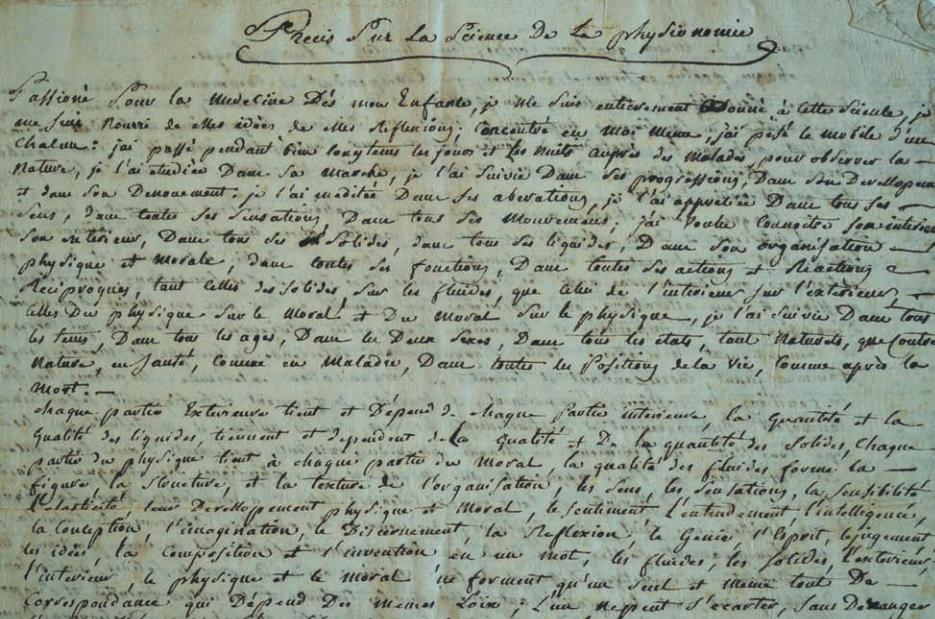 Précis Sur La Science De La physionomie
Passioné pour la Medecine Dés mon Enfance, je me Suis entierement Donné à cette Science, je
me Suis nourri de mes idées de mes Reflexions; Concentré en moi meme, j'ai pésé le mobile d'un
Chacun: j'ai passé pendant bien longtems les jours et les Nuits auprès des Malades, pour observer la
Nature, je l'ai etudiée Dans Sa Marche, je l'ai Suivie Dans Ses progressions, Dans Son Devellopement
et dans Son Denouement. je l'ai meditée Dans Ses aberations, je l'ai appretiée Dans tous Ses
Sens, dans toutes Ses Sensations, Dans tous Ses Mouvemens; j'ai voulu Connoitre Son interieur
Son exterieur, Dans tous Ses Solides, dans tous Ses liquides, Dans Son organisation
physique et Morale, dans toutes Ses fonctions, Dans toutes Ses actions et Reactions
Reciproques, tant Celles des Solides Sur les fluides, que Celui de l'interieur Sur l'exterieur,
Celles Du physique Sur le Moral et Du Moral Sur le physique, je l'ai Suivie Dans tous
les tems, Dans tous les ages, Dans les Deux Sexes, Dans tous les etats, tant Naturels, que Contre
Nature, en Santé, comme en Maladie, Dans toutes les Positions de la Vie, Comme après la
Mort.
Chaque partie Exterieure tient et Dépend de Chaque partie interieure, la Quantité et la
Qualité des liquides, tiennent et dependent de la Qualité et De la quantité des Solides, Chaque
partie du physique tient à Chaque partie du Moral, la qualité des fluides forme la
figure, la Structure, et la texture de l'organisation, les Sens, les Sensations, la Sensibilité
l'elasticité, leur Devellopement physique et Moral, le Sentiment l'entendement, l'intelligence,
la Conception, l'imagination, le Discernement, la Reflexion, le Genie, l'Esprit, le jugement
les idées, la Composition et l'invention en un mot, les fluides, les Solides, l'exterieur
l'interieur, le physique et le Moral ne forment qu'un Seul et même tout De
Correspondance qui Dépend Des mêmes Loix; l'un ne peut S'ecarter, Sans Deranger